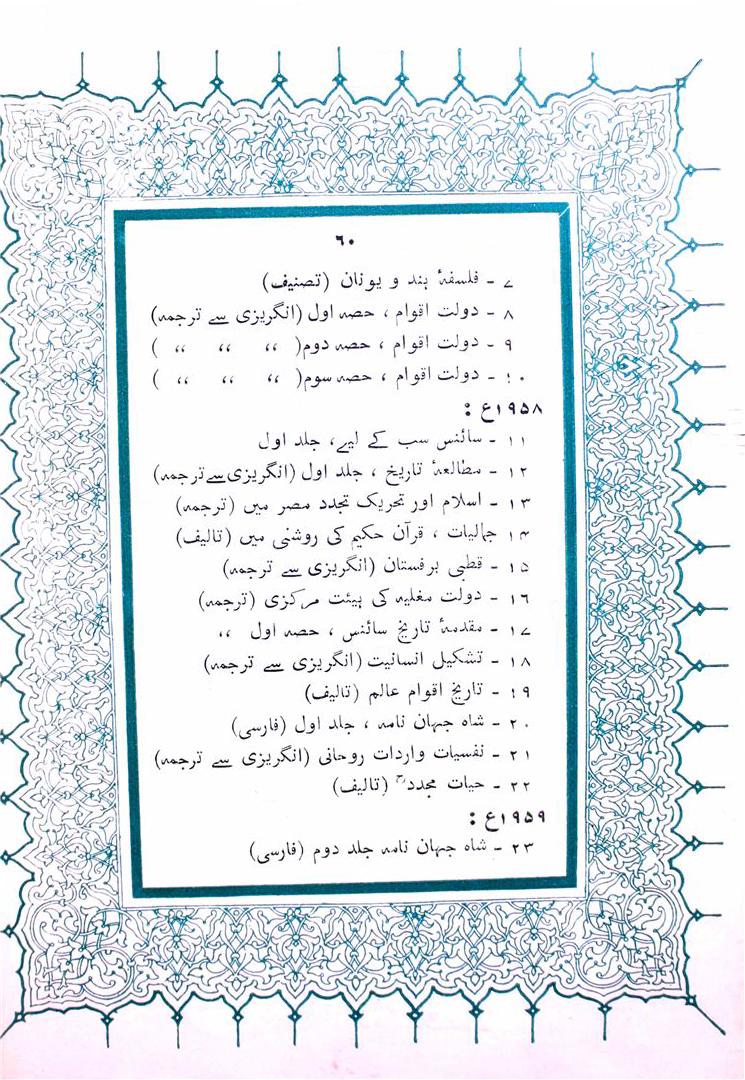 ٦٠
۷ - فلسفۂ ہند و یونان (تصنیف)
۸ - دولت اقوام ، حصہ اول (انگریزی سے ترجمہ)
۹ - دولت اقوام ، حصہ دوم ( ،، ،، ،، )
۱۰ - دولت اقوام ، حصہ سوم ( ،، ،، ،، )
۱۹۵۸ع :
۱۱ - سائنس سب کے لیے، جلد اول
۱۲ - مطالعۂ تاریخ ، جلد اول (انگریزی سے ترجمہ)
۱۳ - اسلام اور تحریک تجدد مصر میں (ترجمہ)
۱۴ جمالیات ، قرآن حکیم کی روشنی میں (تالیف)
۱۵ - قطبی برفستان (انگریزی سے ترجمہ)
۱٦ - دولت مغلیہ کی ہیئت مرکزی (ترجمہ)
۱۷ - مقدمۂ تاریخ سائنس ، حصہ اول ،،
۱۸ - تشکیل انسانیت (انگریزی سے ترجمہ)
۱۹ - تاریخ اقوام عالم (تالیف)
۲۰ - شاہ جہان نامہ ، جلد اول (فارسی)
۲۱ - نفسیات واردات روحانی (انگریزی سے ترجمہ)
۲۲ - حیات مجددؒ (تالیف)
۱۹۵۹ع :
۲۳ - شاہ جہان نامہ جلد دوم (فارسی)